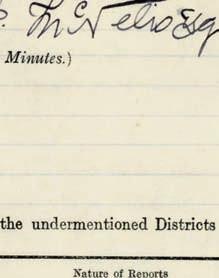 Esq
Minutes.)
the undermentioned Districts
Nature of Reports